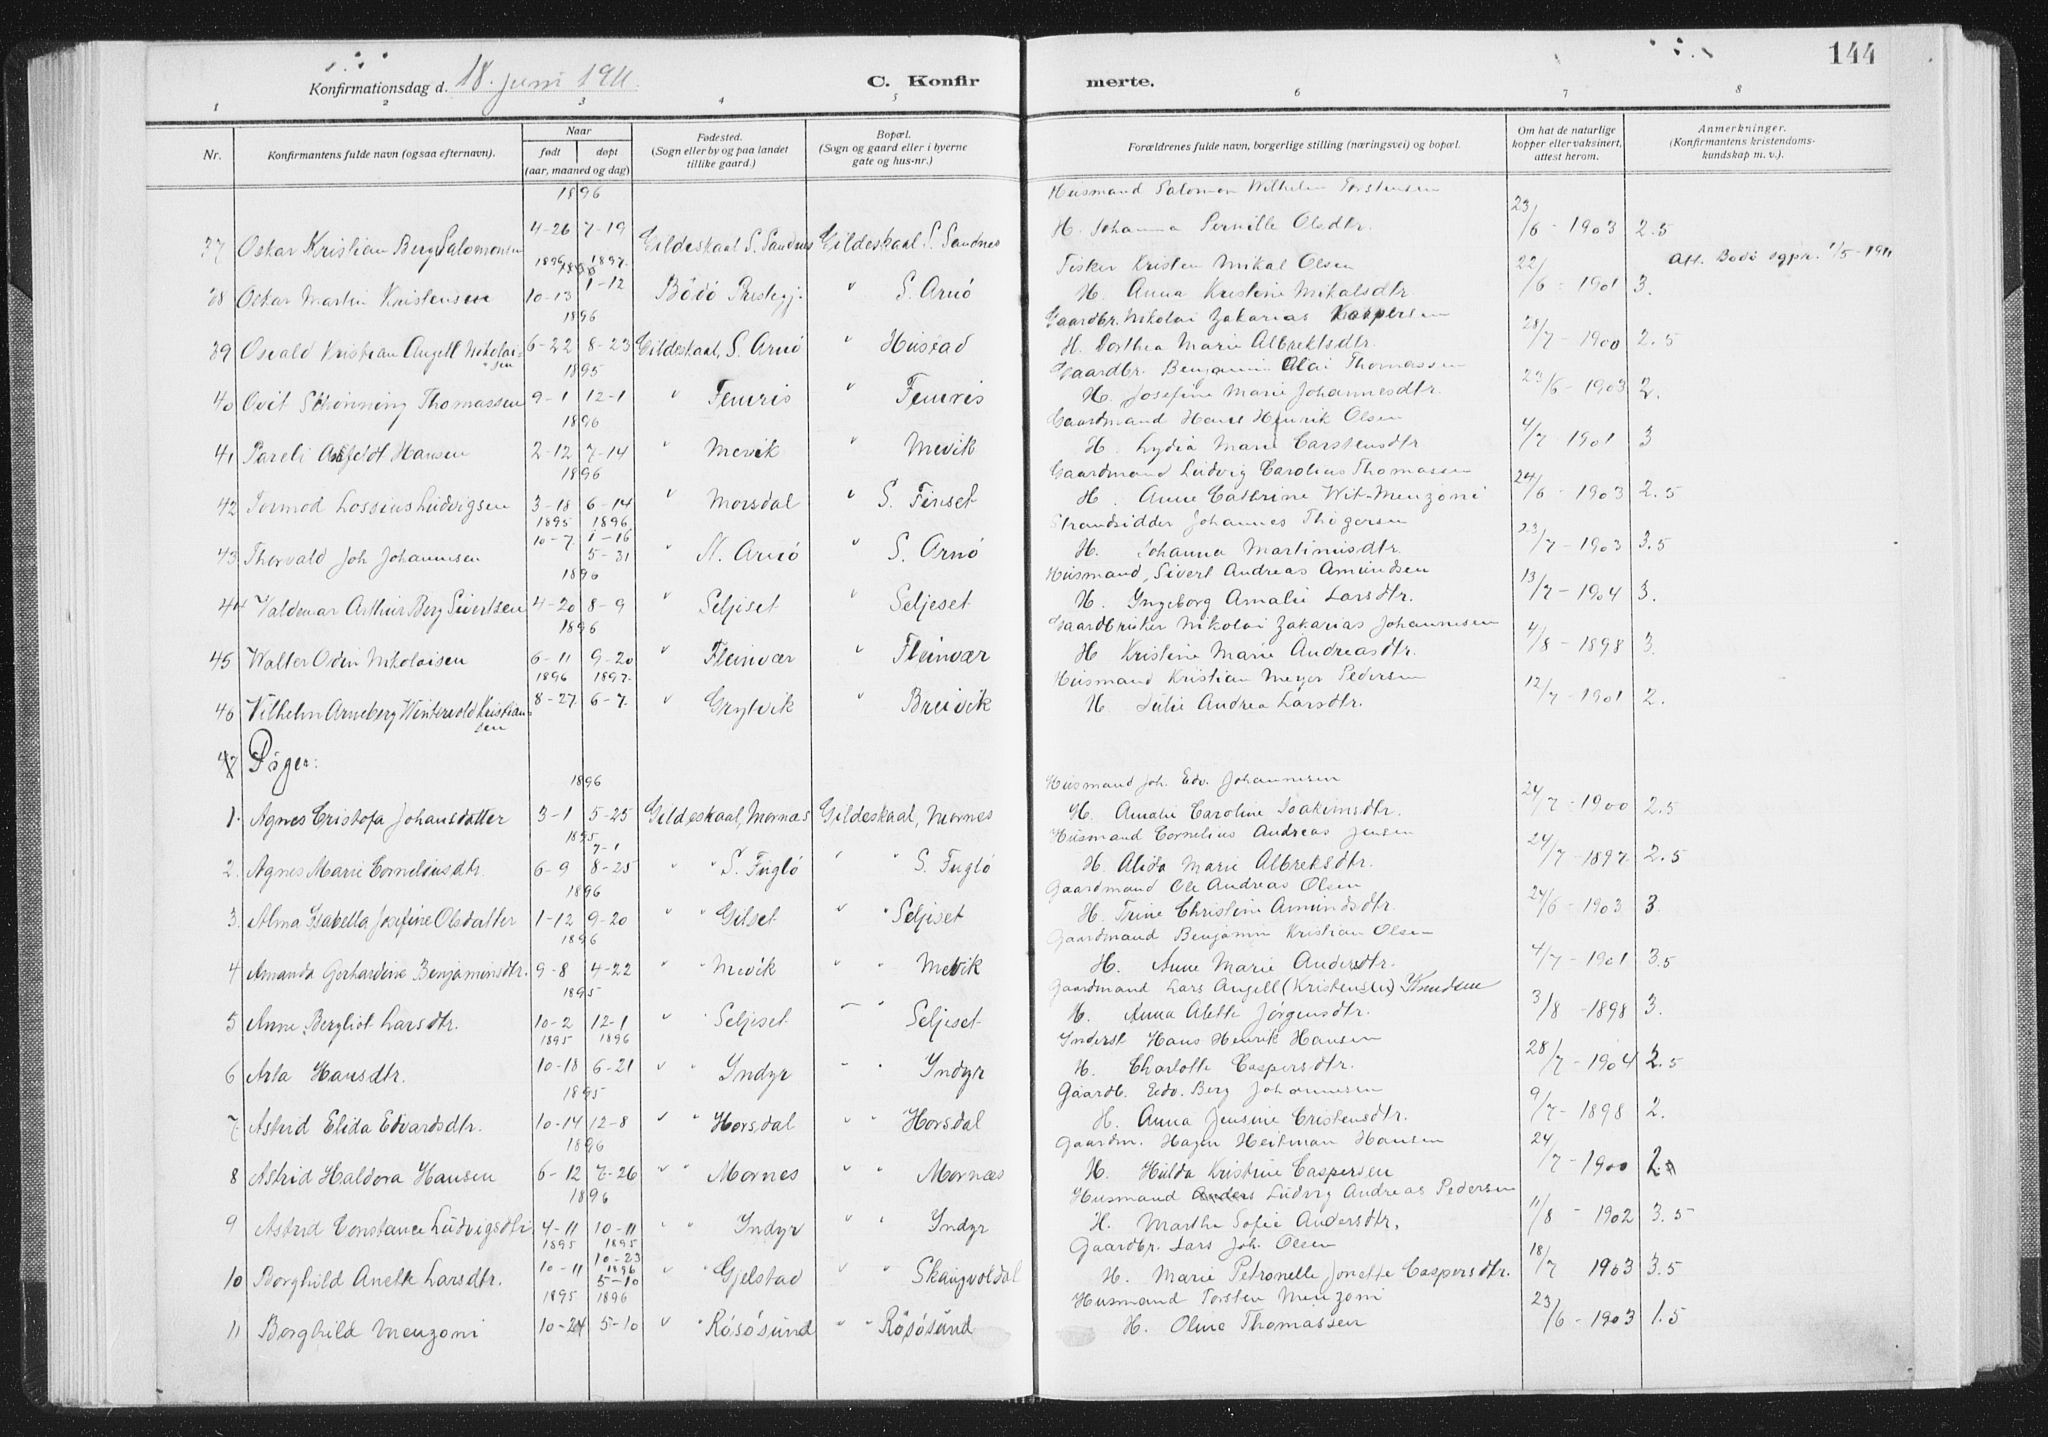 144
Konfirmationsdag d. 18. juni 1911.
C. Konfirmerte.
1 2 3 4 5 6 7 8
Nr. Konfirmantens fulde navn (ogsaa efternavn). Naar født døpt (aar, maaned og dag) Fødested. (Sogn eller by og paa landet tillike gaard.) Bopæl. (Sogn og gaard eller i byerne gate og hus-nr.) Forældrenes fulde navn, borgerlige stilling (næringsvei) og bopæl. Om hat de naturlige kopper eller vaksinert, attest herom. Anmerkninger. (Konfirmantens kristendomskundskap m. v.).
1896 Husmand Salomon Wilhelm Torstensen
37 Oskar Kristian Berg Salomonsen 4-26 7-19 Gildeskaal S. Sandnes Gildeskaal S. Sandnes H. Johanna Pernille Olsdtr. 23/6 - 1903 2.5
1896 1897. Fisker Kristen Mikal Olsen Att. Bodö sgpr. 1/5-1911
38 Oskar Martin Kristensen 10-13 1-12 Bödö Prestegj. " S. Arnö H. Anna Kristine Mikalsdtr 22/6 - 1901 3.
1896 Gaardbr. Nikolai Zakarias Kaspersen
39 Osvald Kristian Angell Nikolaisen 6-22 8-23 Gildeskaal, S. Arnö " Hustad H. Dorthea Marie Albrektsdtr. 28/7 - 1900 2.5
1895 Gaardbr. Benjamin Olai Thomassen
40 Ovit Schönning Thomassen 9-1 12-1 " Femris " Femris H. Josefine Marie Johannesdtr. 23/6 - 1903 2.
1896 Gaardmand Hans Henrik Olsen
41 Pareli Asfeldt Hansen 2-12 7-14 " Mevik " Mevik H. Lydia Marie Carstensdtr 4/7 - 1901 3
1896 Gaardmand Ludvig Carolius Thomassen
42 Tormod Lossius Ludvigsen 3-18 6-14 " Morsdal " S. Finset H. Anne Cathrine Wit-Menzoni 24/6 - 1903 2.5
1895 1896 Strandsidder Johannes Thogersen
43 Thorvald Joh Johannesen 10-7 1-16 5-31 " N. Arnö " S. Arnö H. Johanna Martinusdtr. 23/7 - 1903 3.5
1896 Husmand, Sivert Andreas Amundsen
44 Valdemar Arthur Berg Sivertsen 4-20 8-9 " Seljeset " Seljeset H. Ingeborg Amalie Larsdtr. 13/7 - 1904 3.
1896 Gaardbruker Nikolai Zakarias Johannesen
45 Walter Odin Nikolaisen 6-11 9-20 " Fleinvær " Fleinvær H Kristine Marie Andreasdtr. 4/8 - 1898 3.
1896 1897. Husmand Kristian Meyer Pedersen
46 Vilhelm Arneberg Wintervold Kristiansen 8-27 6-7. " Grytvik " Breivik H. Julie Andrea Larsdtr. 12/7 - 1901 2.
47 Piger:
1896 Husmand Joh. Edv. Johannesen
1. Agnes Cristofa Johansdatter 3-1 5-25 Gildeskaal, Mornæs Gildeskaal, Mornes H. Amalie Caroline Joakimsdtr. 24/7 - 1900 2.5
1895 Husmand Cornelius Andreas Jensen
2. Agnes Marie Corneliusdtr. 6-9 7-1 8-25 " " S. Fuglö " " S. Fuglö H. Alida Marie Albrektsdtr. 24/7 - 1897. 2.5
1896 Gaardmand Ole Andreas Olsen
3. Alma Isabella Josefine Olsdatter 1-12 9-20 " " Gilset " " Seljeset H. Trine Christine Amundsdtr. 24/6 - 1903 3.
1896 Gaardmand Benjamin Kristian Olsen
4 Amanda Gerhardine Benjaminsdtr. 9-8 4-22 " " Mevik " " Mevik H. Anne Marie Andersdtr. 4/7 - 1901 3.5
1895 Gaardmand Lars Angell (Kristensen) Knudsen
5 Anne Bergliot Larsdtr. 10-2 12-1 " " Seljeset " Seljeset H. Anna Alette Jörgensdtr. 3/8 - 1898 3.
1895 1896 Inderst Hans Henrik Hansen
6 Arla Hansdtr. 10-18 6-21 " " Indyr " " Indyr H. Charlotte Caspersdtr. 28/7 - 1904 2.5
1895 Gaardb. Edv. Berg Johannesen
7 Astrid Elida Edvardsdtr. 10-14 12-8 " " Horsdal " " Horsdal H. Anna Jensine Cristensdtr. 9/7 - 1898 2.
1896 Gaardm. Hagen Heitman Hansen
8 Astrid Haldora Hansen 6-12 7-26 " " Mornes " " Mornæs H. Hulda Kristine Caspersen 24/7 - 1900 2.
1896 Husmand Ludvig Andreas Pedersen
9 Astrid Constance Ludvigsdtr 4-11 10-11 " " Indyr " " Indyr H. Martha Sofie Andersdtr. 11/8 - 1902 3.5
1895 1895 Gaardbr. Lars Joh. Olsen
10 Borghild Anette Larsdtr. 10-11 10-23 1896 5-10 " " Gjelstad " " Skaugvoldal H. Marie Petronelle Jonette Caspersdtr. 18/7 1903 3.5
1895 1896 Husmand Torsten Menzoni
11 Borghild Menzoni 10-24 5-10 " " Rösösund " " Rösösund H. Oline Thomassen 23/6 - 1903 1.5